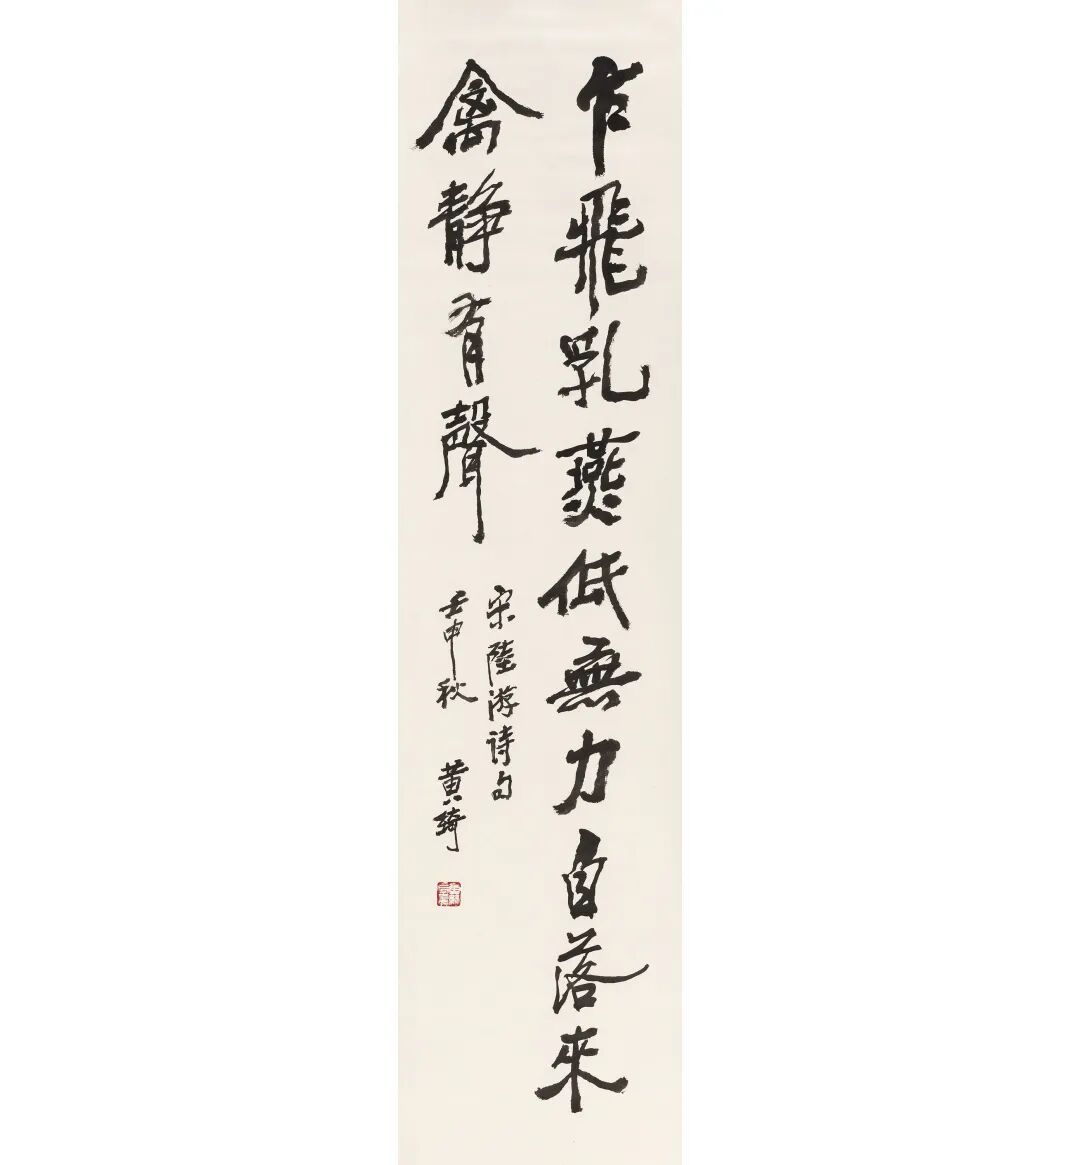 乍飛乳燕低無力自落來
禽靜有聲
宋陸游诗句
壬申秋 黄綺